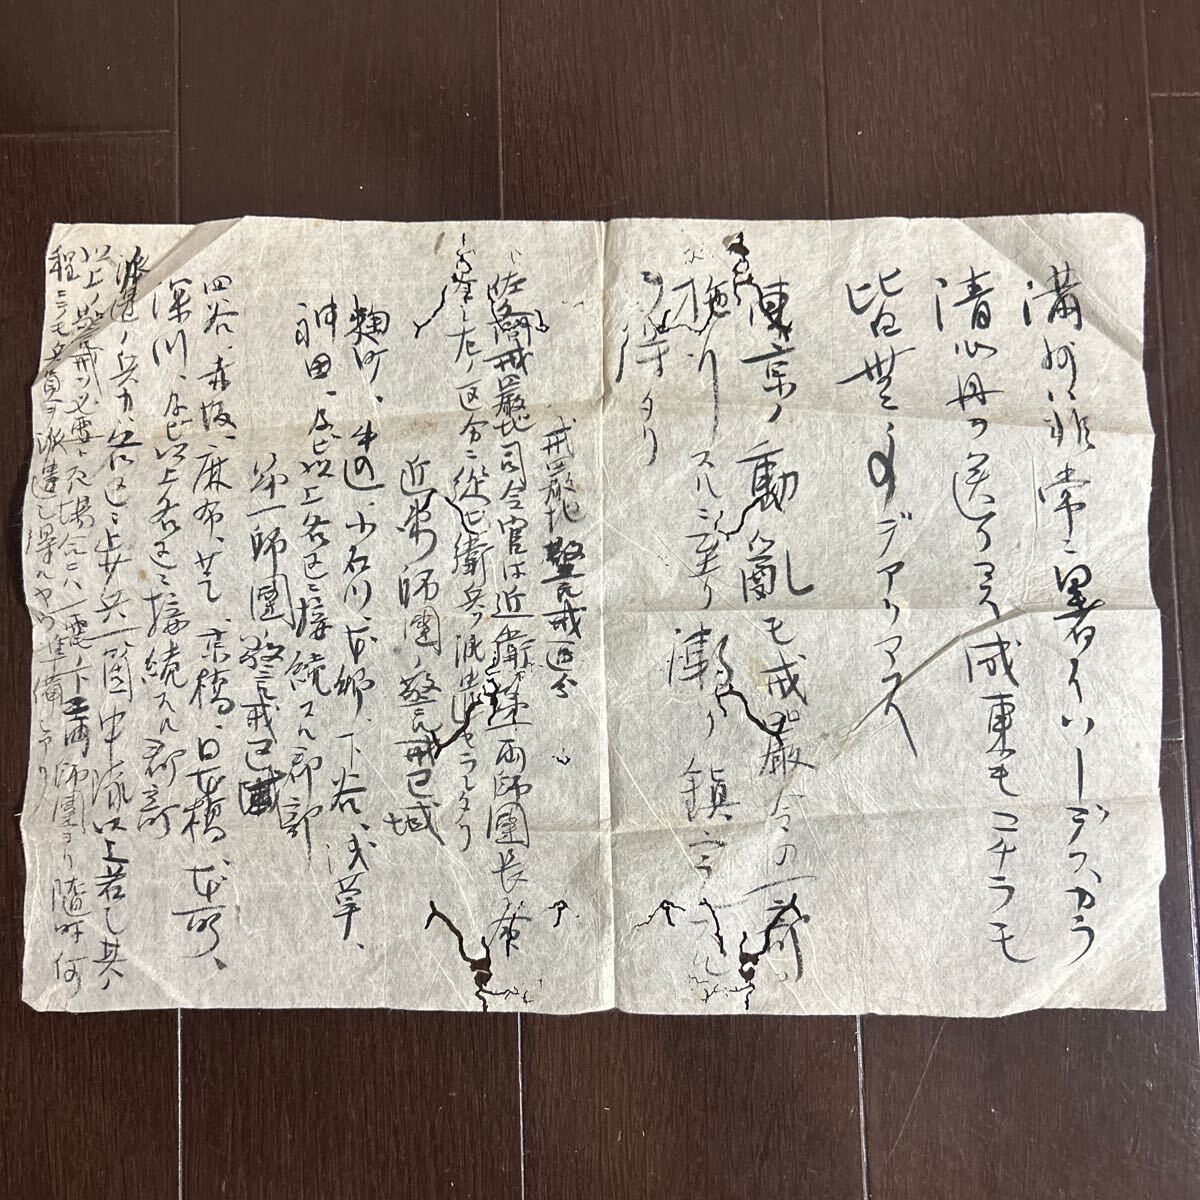 満州ハ非常ニ暑イソーデスカラ
清心丹ヲ送リマス成東モコチラモ
皆無事デアリマス
東京ノ動亂モ戒嚴令の一部ヲ
施行スルニ至リ漸ク鎮定
ヲ得タリ
戒嚴地警戒区分
佐久間戒嚴地司令官は近衛第一両師團長ニ
左ノ区分ニ從ヒ衛兵ヲ派遣セラレタリ
近衛師團ノ警戒區域
麹町、牛込、小石川、本郷、下谷、浅草、
神田、及ビ以上各区ニ接続スル郡部
第一師團ノ警戒区域
四谷、赤坂、麻布、芝、京橋、日本橋、本所、
深川、及ビ以上各区ニ接続スル郡部
派遣ノ兵力ハ各区ニ歩兵一箇中隊以上若シ其ノ
以上ノ警戒ヲ必要トスル場合ニハ電命ノ下両師團ヨリ随時何
程ニテモ人員ヲ派遣シ得ルヤウ準備シアリ